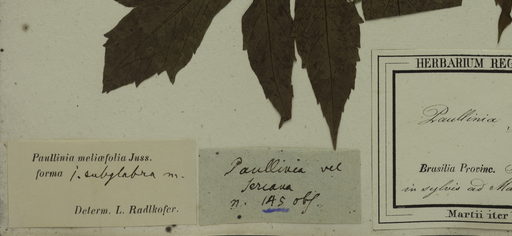 Paullinia meliæfolia Juss.
forma j. subglabra m.
Determ. L. Radlkofer.
Paullinia vel
Seriana
n. 145 obs.
HERBARIUM REG
Paullinia
Brasilia Provinc.
in sylvis ad Ma
Martii iter